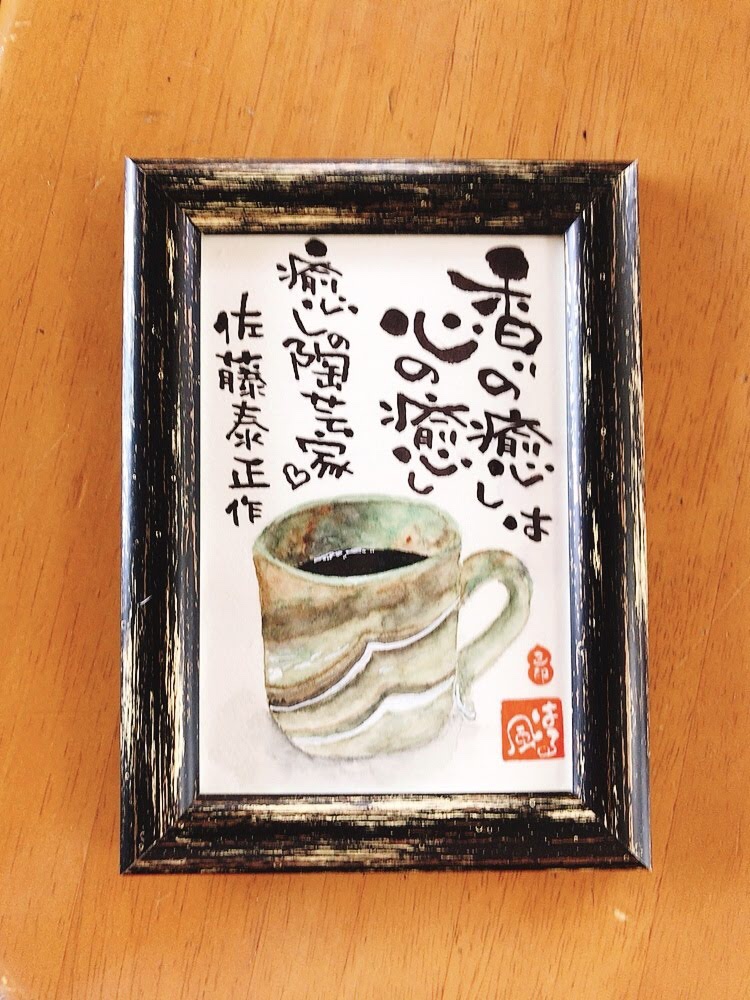 香りの癒しは
心の癒し
癒しの陶芸家♡
佐藤泰正作
はるか
風